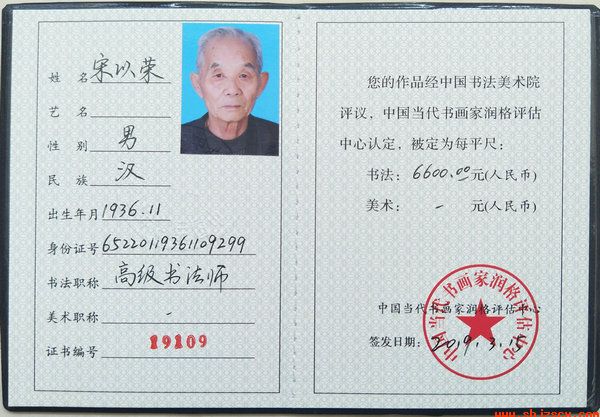 姓 名 宋以荣
艺 名
性 别 男
民 族 汉
出生年月 1936.11
身份证号 65220119361109299
书法职称 高级书法师
美术职称 -
证书编号 19109
您的作品经中国书法美术院
评议，中国当代书画家润格评估
中心认定，被定为每平尺：
书法：6600.00元(人民币)
美术： - 元(人民币)
中国当代书画家润格评估中心
签发日期：2019.3.15
中国当代书画家润格评估中心